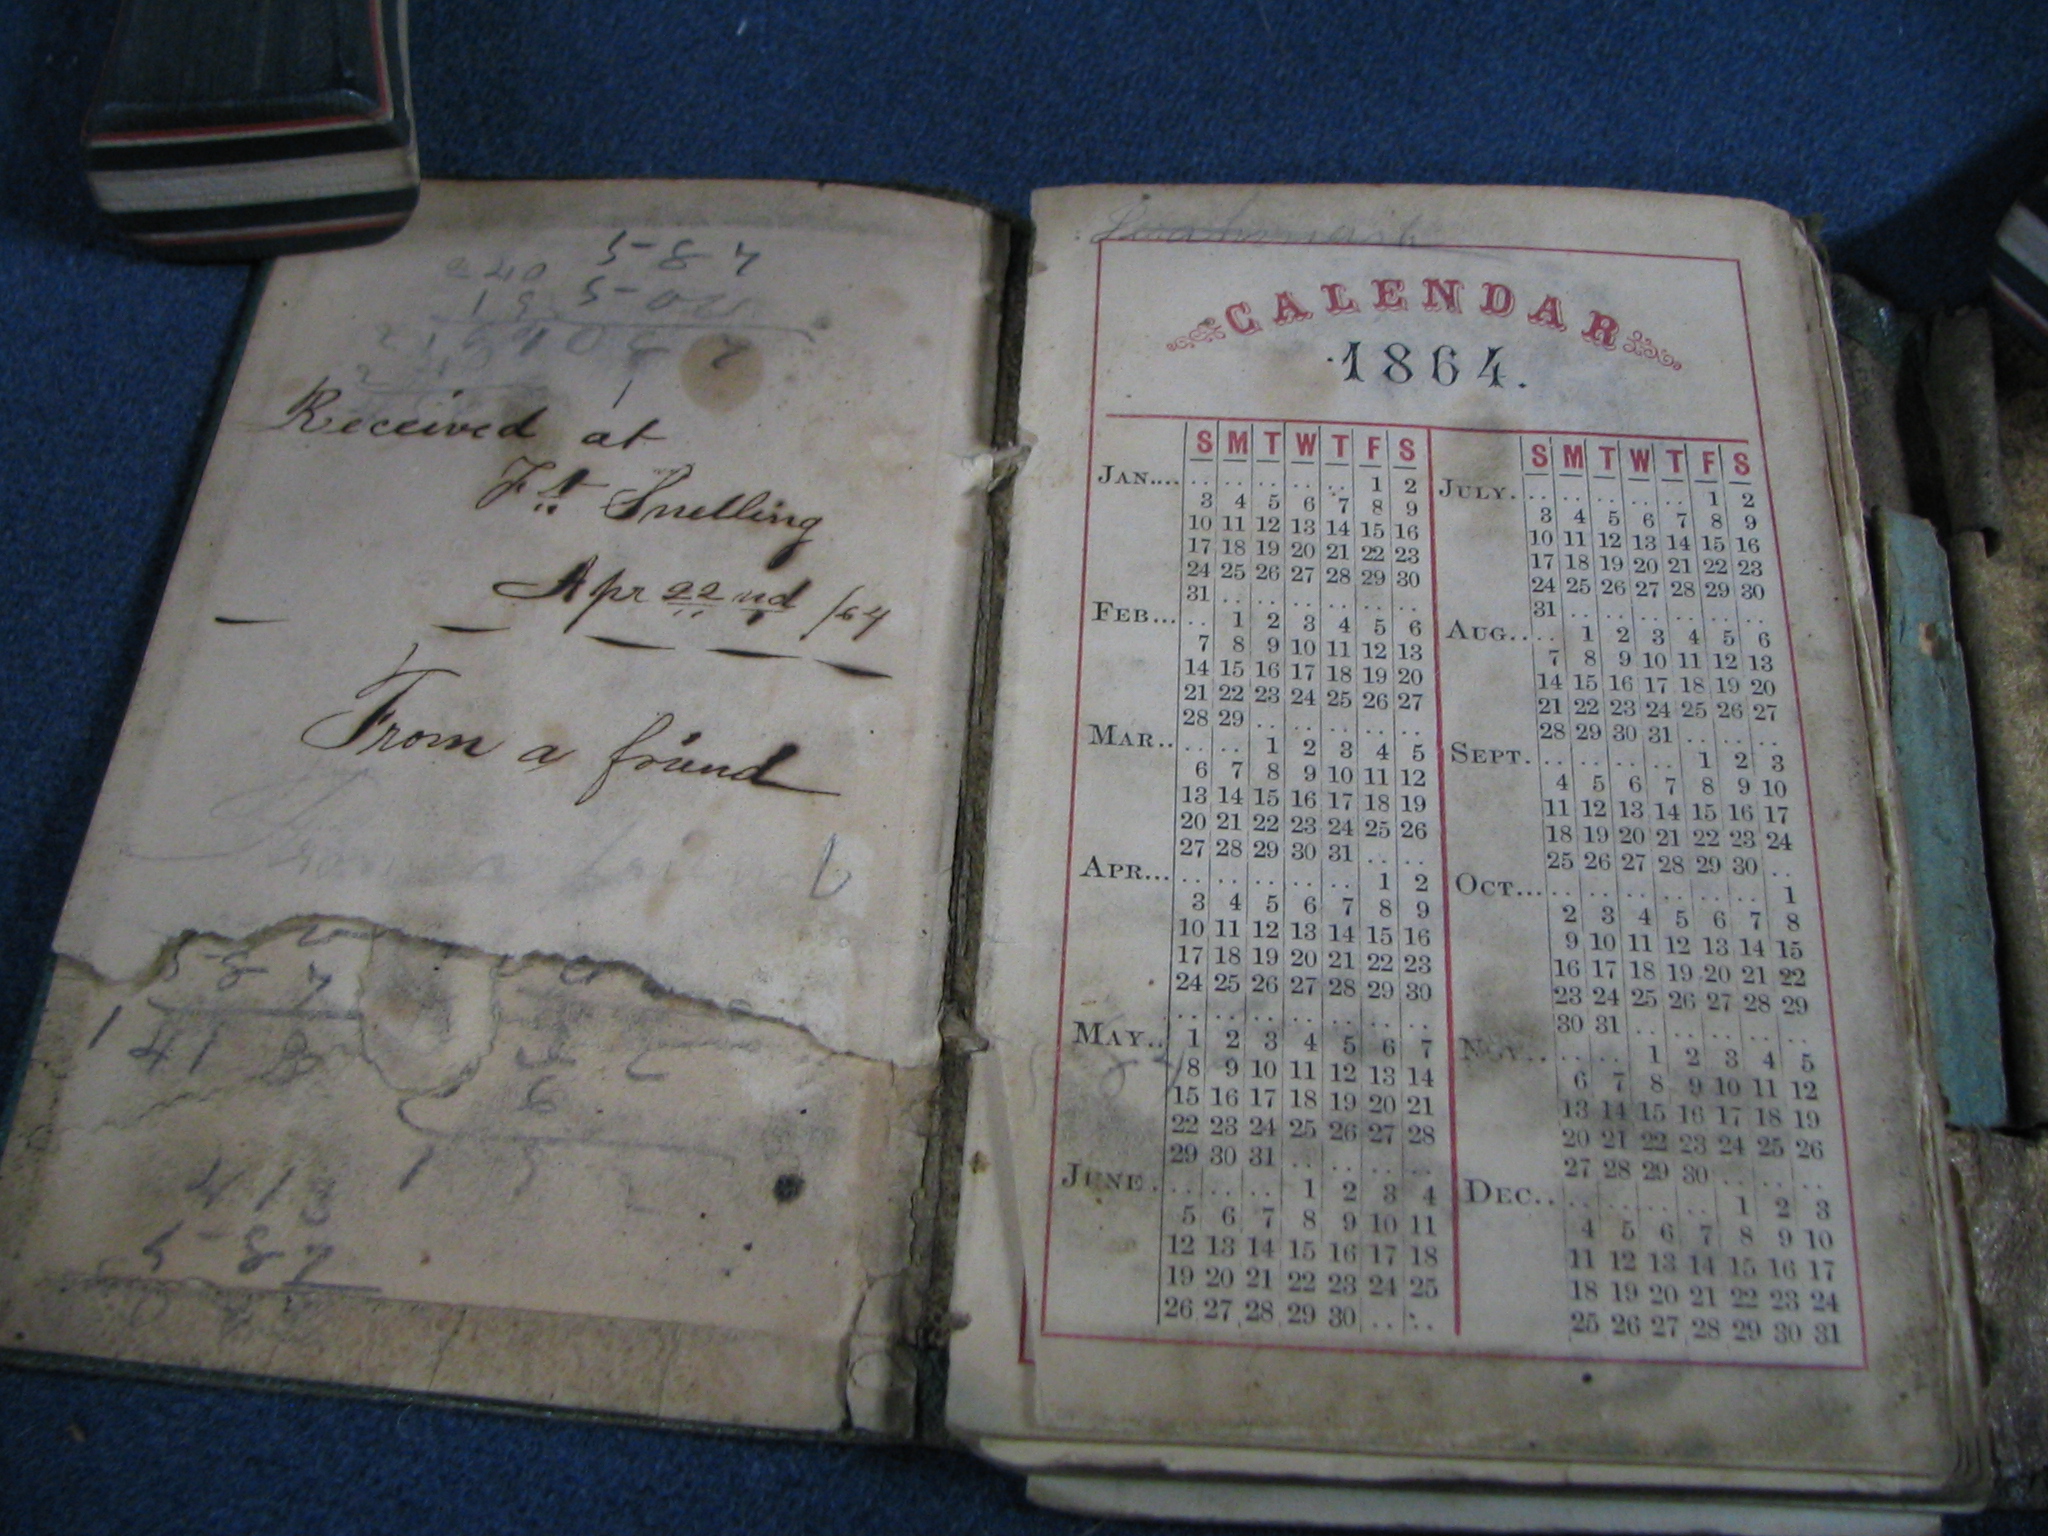 5-87
240
15 5-0
Received at
Ft Snelling
Apr 22nd /64
From a friend
From a frien
5-8 7
1 41 8
6
1 5
41
5-87
CALENDAR
1864.
S M T W T F S
JAN.... .. .. .. .. .. 1 2
3 4 5 6 7 8 9
10 11 12 13 14 15 16
17 18 19 20 21 22 23
24 25 26 27 28 29 30
31 .. .. .. .. .. ..
FEB... .. 1 2 3 4 5 6
7 8 9 10 11 12 13
14 15 16 17 18 19 20
21 22 23 24 25 26 27
28 29 .. .. .. .. ..
MAR.. .. .. 1 2 3 4 5
6 7 8 9 10 11 12
13 14 15 16 17 18 19
20 21 22 23 24 25 26
27 28 29 30 31 .. ..
APR... .. .. .. .. .. 1 2
3 4 5 6 7 8 9
10 11 12 13 14 15 16
17 18 19 20 21 22 23
24 25 26 27 28 29 30
.. .. .. .. .. .. ..
MAY.. 1 2 3 4 5 6 7
8 9 10 11 12 13 14
15 16 17 18 19 20 21
22 23 24 25 26 27 28
29 30 31 .. .. .. ..
JUNE. .. .. .. 1 2 3 4
5 6 7 8 9 10 11
12 13 14 15 16 17 18
19 20 21 22 23 24 25
26 27 28 29 30 .. ..
S M T W T F S
JULY. .. .. .. .. .. 1 2
3 4 5 6 7 8 9
10 11 12 13 14 15 16
17 18 19 20 21 22 23
24 25 26 27 28 29 30
31 .. .. .. .. .. ..
AUG.. .. 1 2 3 4 5 6
7 8 9 10 11 12 13
14 15 16 17 18 19 20
21 22 23 24 25 26 27
28 29 30 31 .. .. ..
SEPT. .. .. .. .. 1 2 3
4 5 6 7 8 9 10
11 12 13 14 15 16 17
18 19 20 21 22 23 24
25 26 27 28 29 30 ..
OCT... .. .. .. .. .. .. 1
2 3 4 5 6 7 8
9 10 11 12 13 14 15
16 17 18 19 20 21 22
23 24 25 26 27 28 29
30 31 .. .. .. .. ..
NOV.. .. .. 1 2 3 4 5
6 7 8 9 10 11 12
13 14 15 16 17 18 19
20 21 22 23 24 25 26
27 28 29 30 .. .. ..
DEC.. .. .. .. .. 1 2 3
4 5 6 7 8 9 10
11 12 13 14 15 16 17
18 19 20 21 22 23 24
25 26 27 28 29 30 31